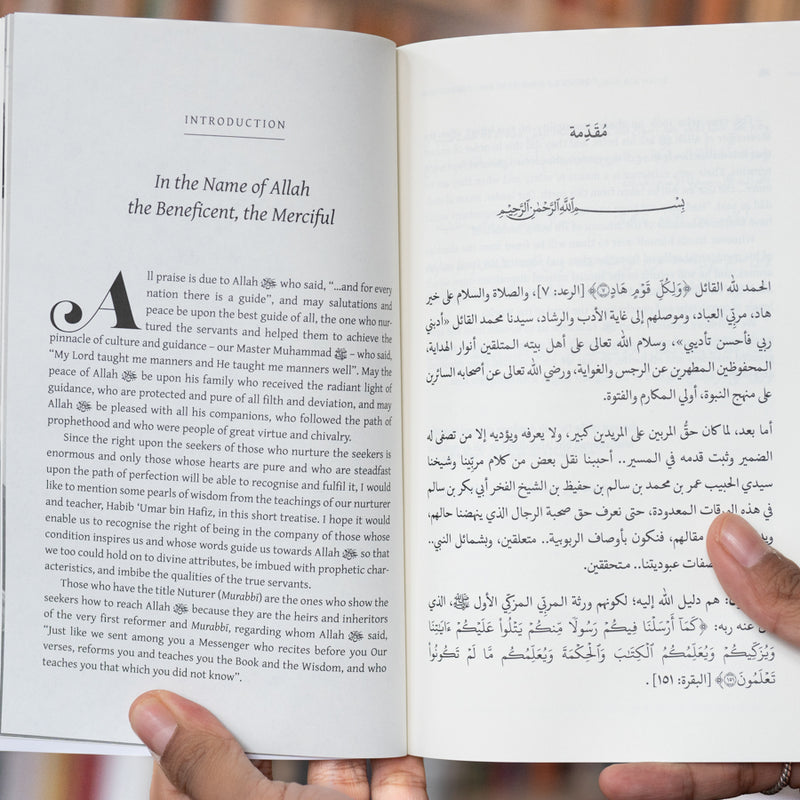 INTRODUCTION
In the Name of Allah
the Beneficent, the Merciful
All praise is due to Allah ﷻ who said, “...and for every
nation there is a guide”, and may salutations and
peace be upon the best guide of all, the one who nur-
tured the servants and helped them to achieve the
pinnacle of culture and guidance – our Master Muhammad ﷺ – who said,
“My Lord taught me manners and He taught me manners well”. May the
peace of Allah ﷻ be upon his family who received the radiant light of
guidance, who are protected and pure of all filth and deviation, and may
Allah ﷻ be pleased with all his companions, who followed the path of
prophethood and who were people of great virtue and chivalry.
Since the right upon the seekers of those who nurture the seekers is
enormous and only those whose hearts are pure and who are steadfast
upon the path of perfection will be able to recognise and fulfil it, I would
like to mention some pearls of wisdom from the teachings of our nurturer
and teacher, Habib ‘Umar bin Hafiz, in this short treatise. I hope it would
enable us to recognise the right of being in the company of those whose
condition inspires us and whose words guide us towards Allah ﷻ so that
we too could hold on to divine attributes, be imbued with prophetic char-
acteristics, and imbibe the qualities of the true servants.
Those who have the title Nuturer (Murabbī) are the ones who show the
seekers how to reach Allah ﷻ because they are the heirs and inheritors
of the very first reformer and Murabbī, regarding whom Allah ﷻ said,
“Just like we sent among you a Messenger who recites before you Our
verses, reforms you and teaches you the Book and the Wisdom, and who
teaches you that which you did not know”.
مُقَدِّمة
بِسْمِ اللَّهِ الرَّحْمَٰنِ الرَّحِيمِ
الحمد لله القائل ﴿وَلِكُلِّ قَوْمٍ هَادٍ ۝٧﴾ [الرعد: ٧]، والصلاة والسلام على خير
هاد، مربّي العباد، وموصلهم إلى غاية الأدب والرشاد، سيدنا محمد القائل «أدبني
ربي فأحسن تأديبي»، وسلام الله تعالى على أهل بيته المتلقين أنوار الهداية،
المحفوظين المطهرين عن الرجس والغواية، ورضي الله تعالى عن أصحابه السائرين
على منهج النبوة، أولي المكارم والفتوة.
أما بعد، لما كان حقُّ المربين على المريدين كبير، ولا يعرفه ويؤديه إلا من تصفى له
الضمير وثبت قدمه في المسير.. أحببنا نقل بعض من كلام مربّينا وشيخنا
سيدي الحبيب عمر بن محمد بن سالم بن حفيظ بن الشيخ الفخر أبي بكر بن سالم
في هذه الورقات المعدودة، حتى نعرف حق صحبة الرجال الذي ينهضنا حالهم،
مقالهم، فنكون بأوصاف الربوبية.. متعلقين، وبشمائل النبي..
صفات عبوديتنا.. متحققين.
هم دليل الله إليه؛ لكونهم ورثة المربّي المزكّي الأول ﷺ، الذي
عنه ربه: ﴿كَمَآ أَرْسَلْنَا فِيكُمْ رَسُولًا مِّنكُمْ يَتْلُوا۟ عَلَيْكُمْ ءَايَٰتِنَا
وَيُزَكِّيكُمْ وَيُعَلِّمُكُمُ ٱلْكِتَٰبَ وَٱلْحِكْمَةَ وَيُعَلِّمُكُم مَّا لَمْ تَكُونُوا۟
تَعْلَمُونَ ۝١٥١﴾ [البقرة: ١٥١].